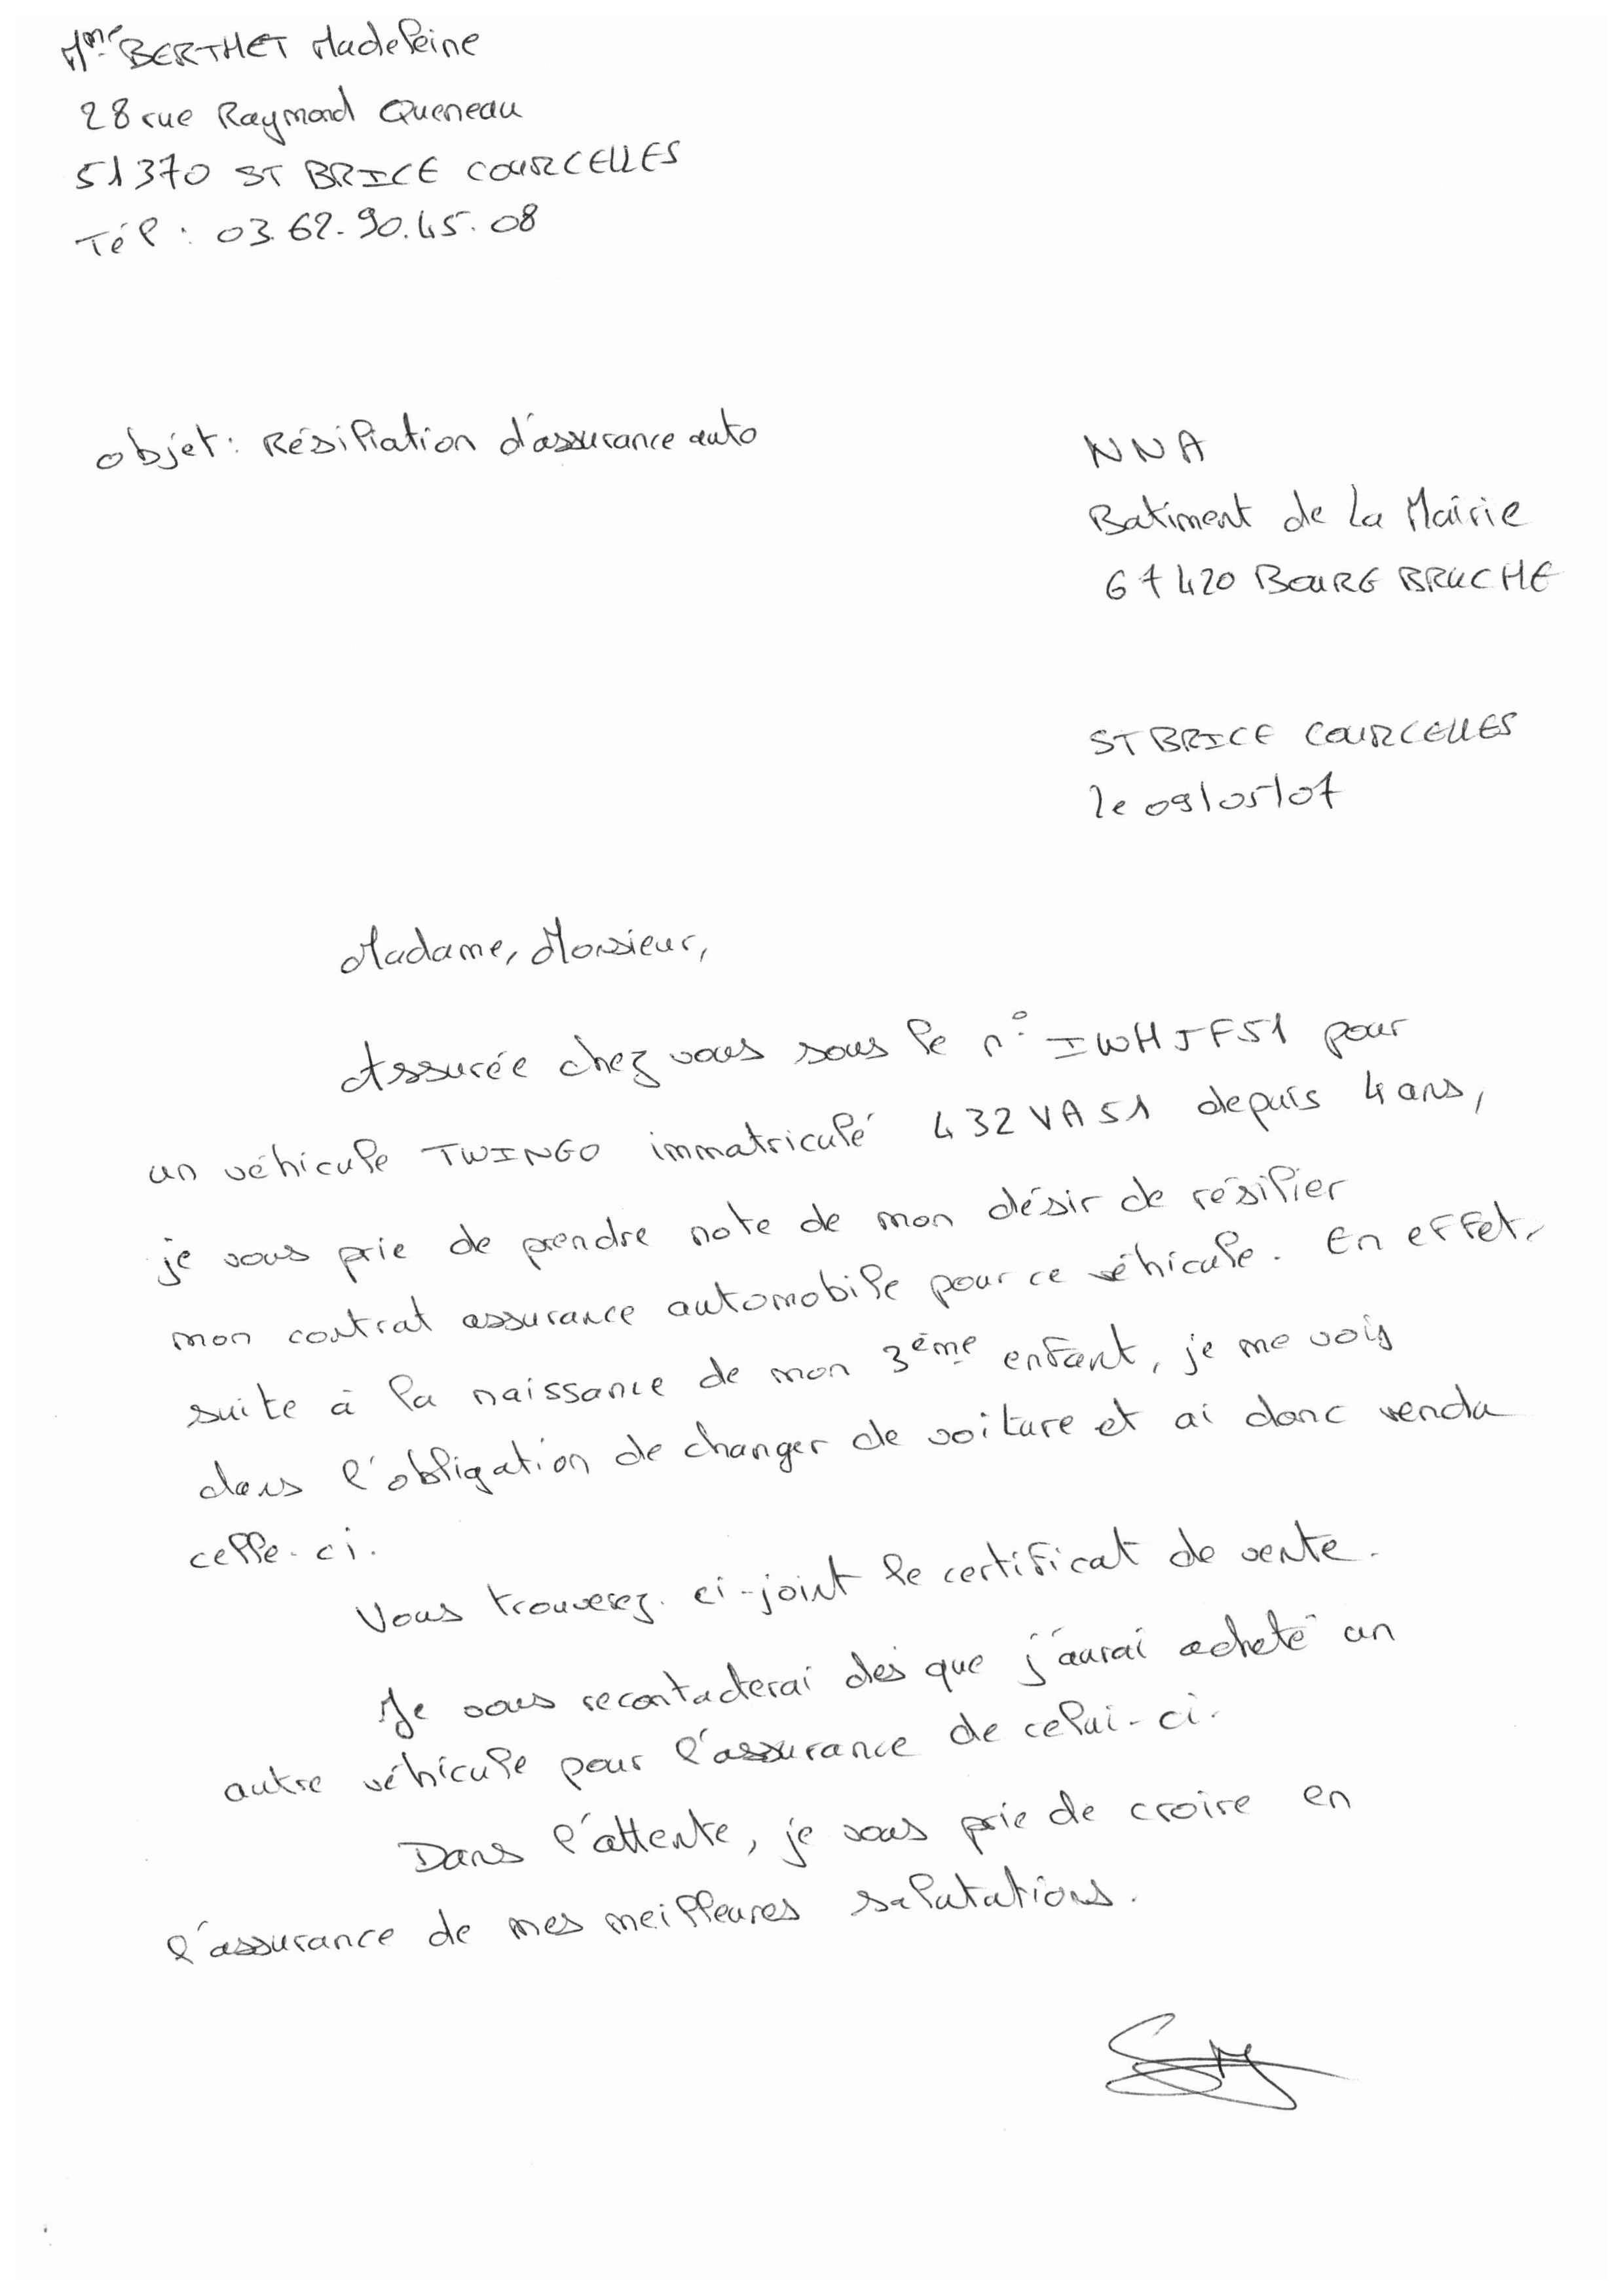 Mme BERTHET Madeleine
28 rue Raymond Queneau
51370 ST BRICE COURCELLES
Tél : 03.62.90.45.08
objet : Résiliation d'assurance auto
NNA
Batiment de la Mairie
67420 BOURG BRUCHE
ST BRICE COURCELLES
le 09/05/07
Madame, Monsieur,
Assurée chez vous sous le n° IWHJF51 pour
un véhicule TWINGO immatriculé 432VA51 depuis 4 ans,
je vous prie de prendre note de mon désir de résilier
mon contrat assurance automobile pour ce véhicule. En effet,
suite à la naissance de mon 3ème enfant, je me vois
dans l'obligation de changer de voiture et ai donc vendu
celle-ci.
Vous trouverez ci-joint le certificat de vente.
Je vous recontacterai dès que j'aurai acheté un
autre véhicule pour l'assurance de celui-ci.
Dans l'attente, je vous prie de croire en
l'assurance de mes meilleures salutations.